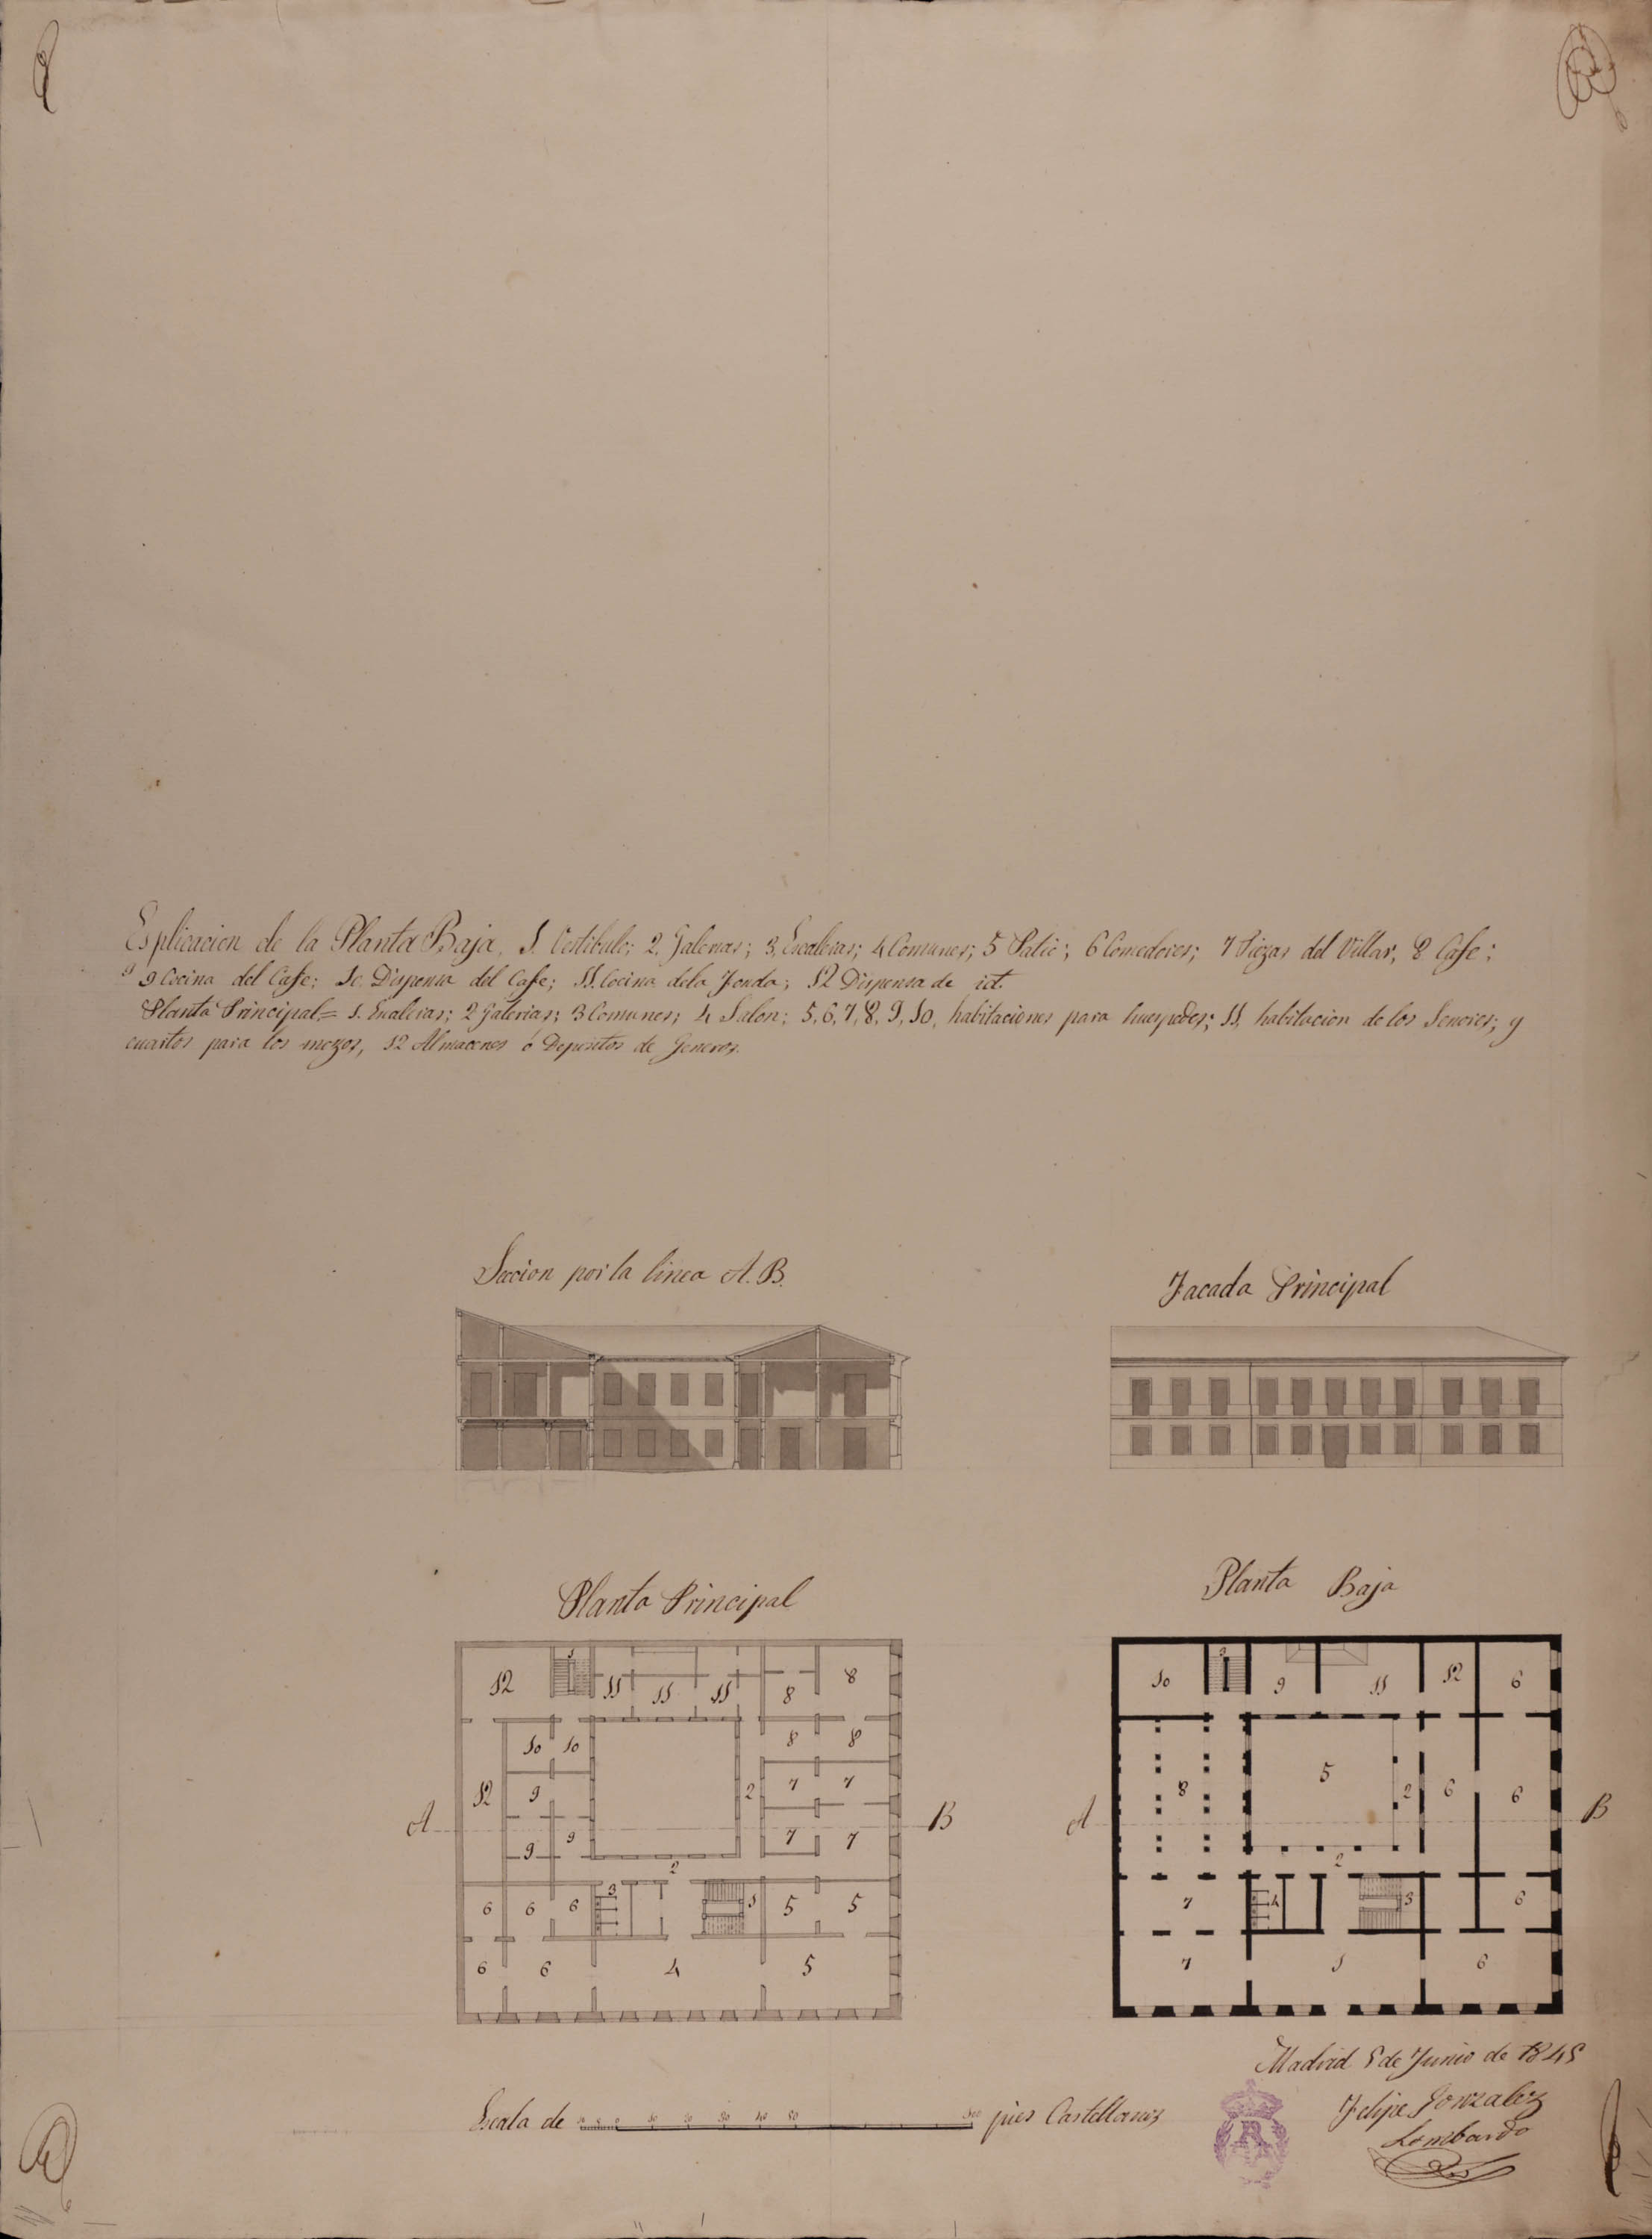 Esplicacion de la Planta Baja. 1. Vestibulo; 2. Galerias; 3, Escaleras; 4 Comunes; 5 Patio; 6 Comedores; 7 Piezas del Villar; 8 Cafe;
9 Cocina del Cafe; 10. Dispensa del Cafe; 11. Cocina dela Fonda; 12 Dispensa de id.
Planta Principal = 1. Escaleras; 2 Galerias; 3 Comunes; 4 Salon; 5, 6, 7, 8, 9, 10, habitaciones para huespedes; 11, habitacion de los Senores; y
cuartos para los mozos, 12 Almacenes ó Depositos de Generos.
Seccion por la linea A. B.
Facada Principal
Planta Principal
Planta Baja
12 1 11 11 11 8 8
10 10 8 8
12 9 2 7 7
A 9 9 7 7 B
2
6 6 6 3 1 5 5
6 6 4 5
10 3 9 11 12 6
8 5 2 6 6
A B
2
7 4 3 6
7 1 6
Madrid 5 de Junio de 1845
Escala de 10 5 0 10 20 30 40 50 100 pies Castellanos
Felipe Gonzalez
Lombardo